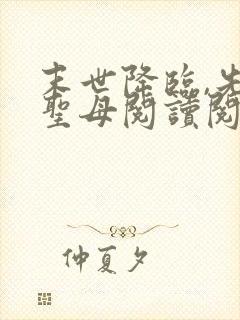 末世降臨,先
聖母閱讀閱
仲夏夕